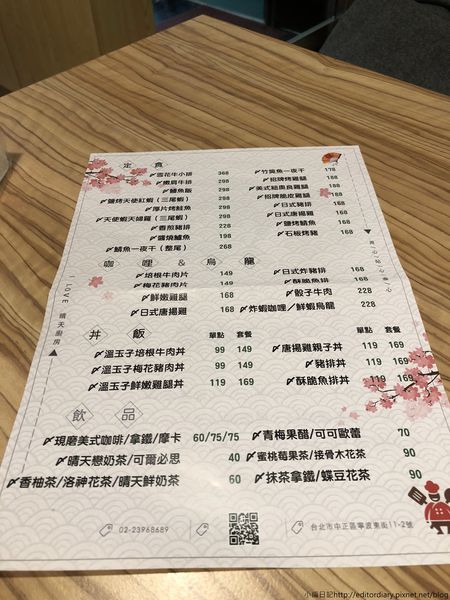 定食
雪花牛小排 368
嫩肩牛排 298
鱸魚飯 298
鹽烤天使紅蝦(三尾蝦) 298
厚片烤鮭魚 298
天使蝦天婦羅(三尾蝦) 298
香煎豬排 228
醬燒鱸魚 198
鯖魚一夜干(整尾) 268
竹筴魚一夜干 178
招牌烤雞腿 188
美式紐奧良雞腿 188
招牌脆皮雞腿 188
日式豬排 168
日式唐揚雞 168
鹽烤鯖魚 188
石板烤豬 188
咖哩&烏龍
培根牛肉片 149
梅花豬肉片 149
鮮嫩雞腿 168
日式唐揚雞 168
日式炸豬排 168
酥脆魚排 168
骰子牛肉 228
炸蝦咖哩/鮮蝦烏龍 228
丼飯
單點 套餐
溫玉子培根牛肉丼 99 149
溫玉子梅花豬肉丼 99 149
溫玉子鮮嫩雞腿丼 119 169
單點 套餐
唐揚雞親子丼 119 169
豬排丼 119 169
酥脆魚排丼 119 169
飲品
現磨美式咖啡/拿鐵/摩卡 60/75/75
晴天戀奶茶/可爾必思 40
香柚茶/洛神花茶/晴天鮮奶茶 60
青梅果醋/可可歐蕾 70
蜜桃莓果茶/接骨木花茶 90
抹茶拿鐵/蝶豆花茶 90
I LOVE 晴天廚房
02-23968689
台北市中正區寧波東街11-2號
小陽日記http://editordiary.pixnet.net/blog